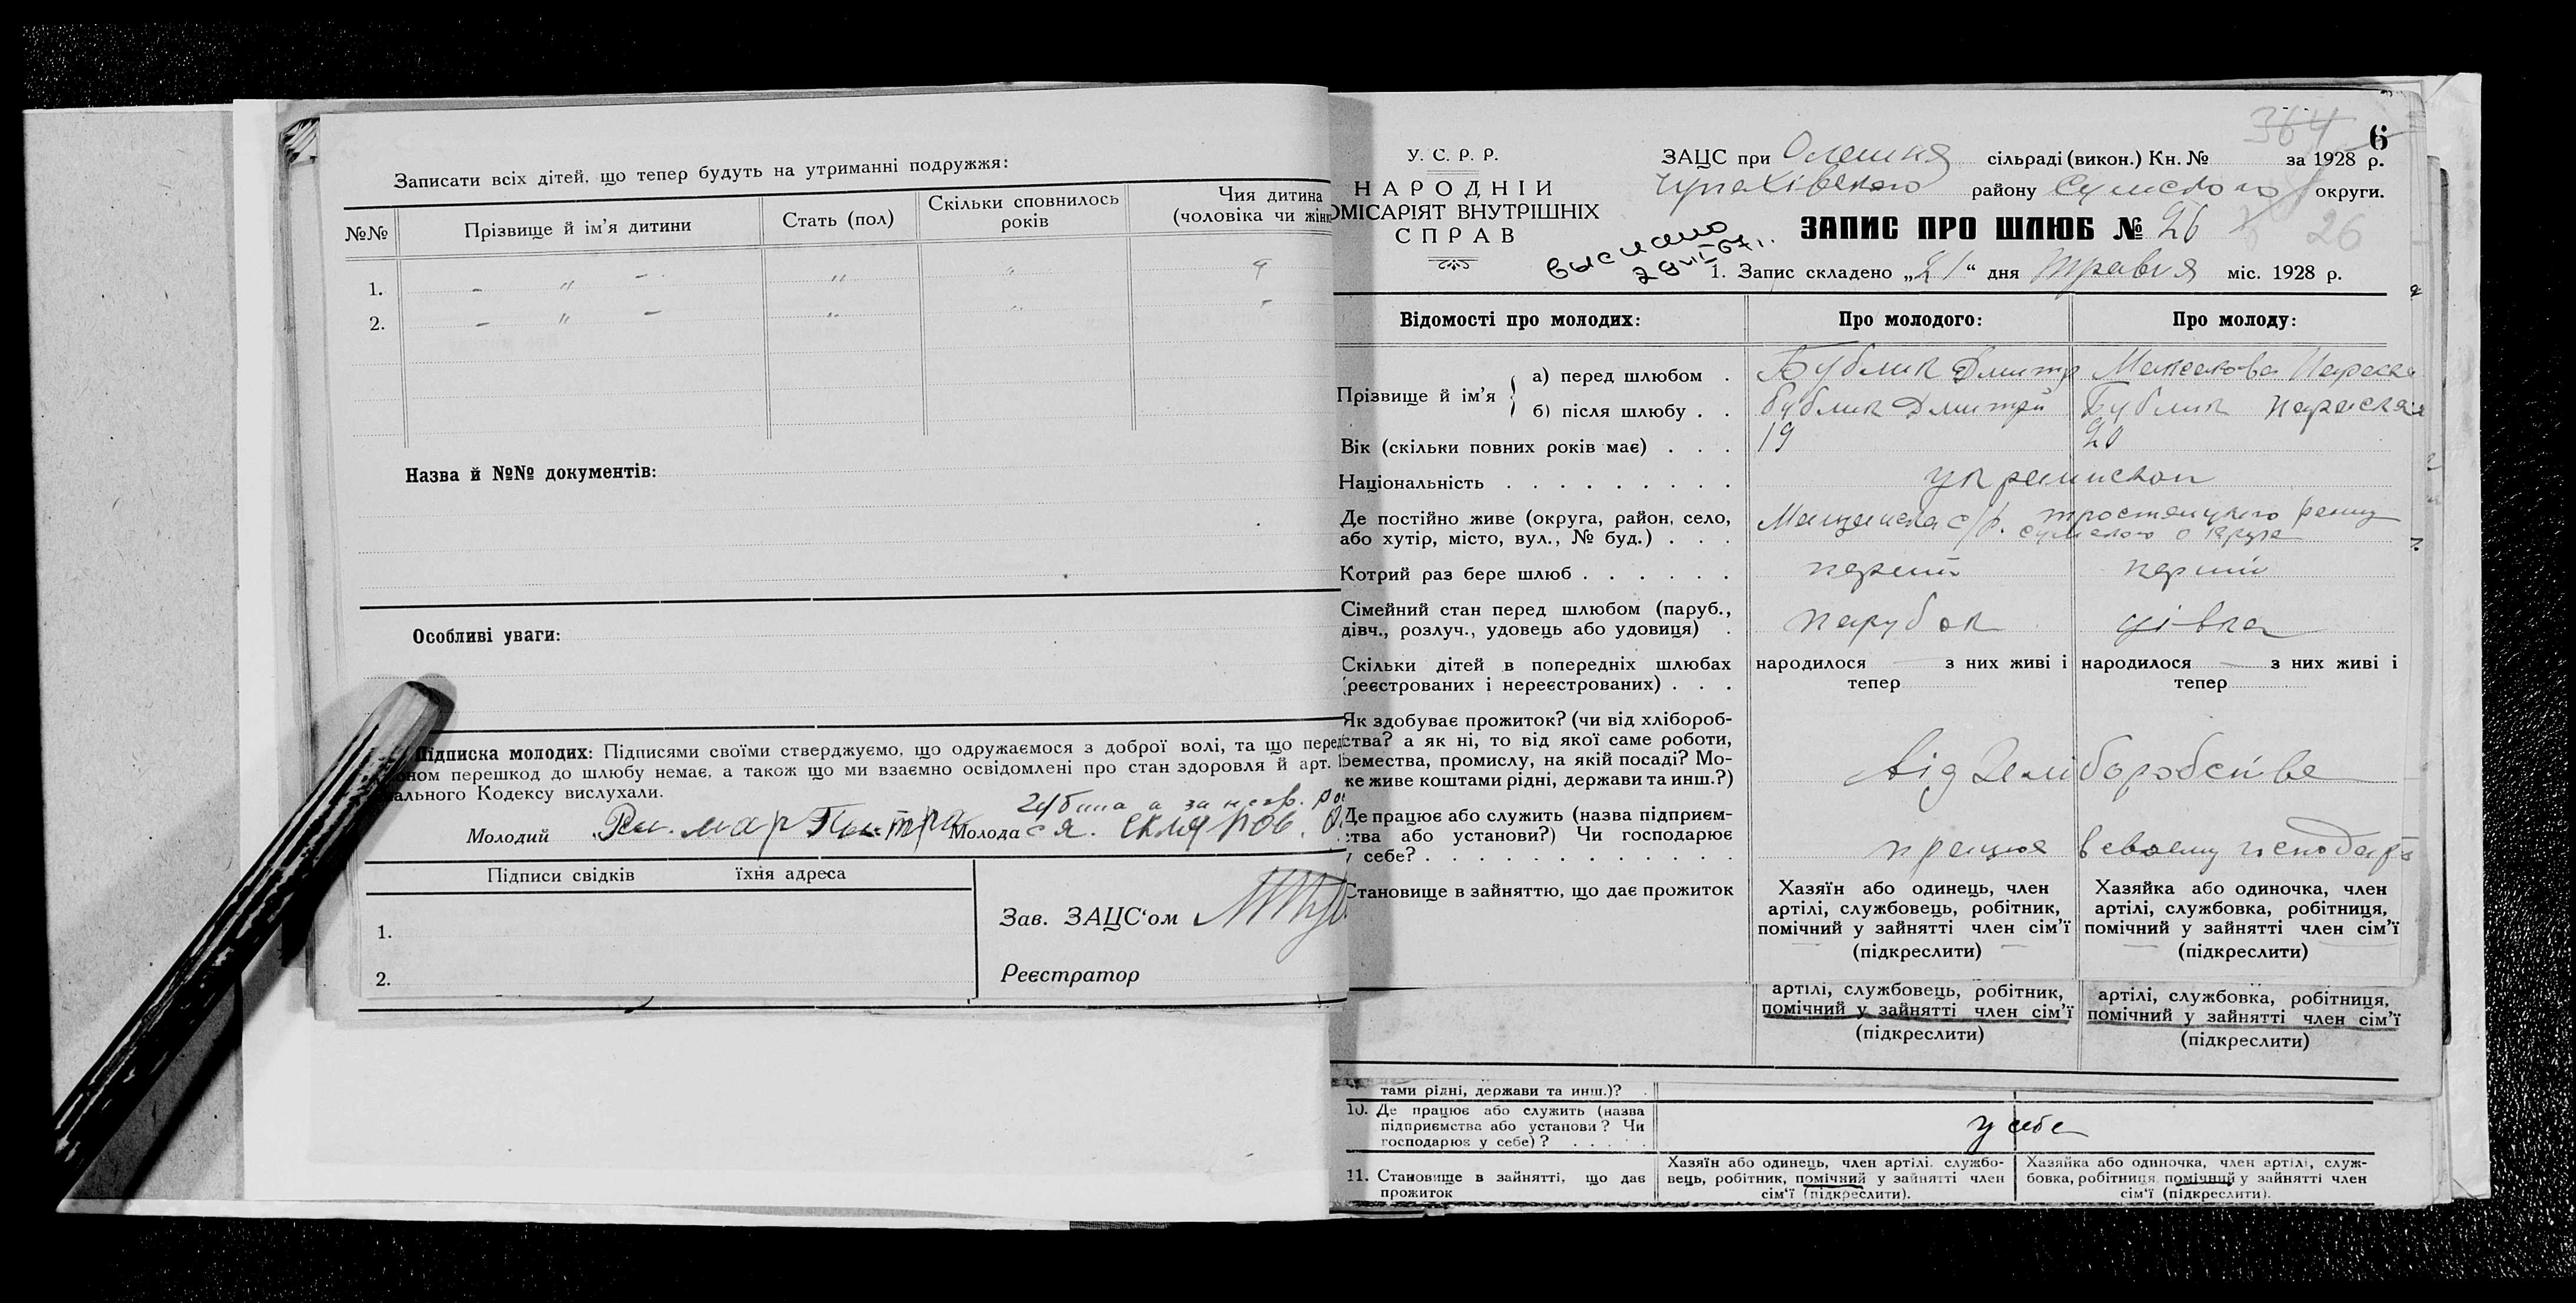 Записати всіх дітей, що тепер будуть на утриманні подружжя:
№№ Прізвище й ім'я дитини Стать (пол) Скільки сповнилось років Чия дитина (чоловіка чи
1. - " - " "
2. - " - " "
Назва й №№ документів:
Особливі уваги:
Підписка молодих: Підписями своїми стверджуємо, що одружаємося з доброї волі, та що
перешкод до шлюбу немає, а також що ми взаємно освідомлені про стан здоровля й арт.
Кодексу вислухали.
Молодий
Молода
Підписи свідків їхня адреса
1.
2.
Зав. ЗАЦС'ом
Реєстратор
364 6
У. С. Р. Р.
НАРОДНІЙ
ОМІСАРІЯТ ВНУТРІШНІХ
СПРАВ
ЗАЦС при Олешня сільраді (викон.) Кн. № за 1928 р.
Чупахівського району Сумського округи.
ЗАПИС ПРО ШЛЮБ № 26
26
выслано
1. Запис складено „21“ дня Травня міс. 1928 р.
Відомості про молодих: Про молодого: Про молоду:
Прізвище й ім'я
а) перед шлюбом . Бублик Дмитр
б) після шлюбу . . Бублик Дмитрий Бублик Параска
Вік (скільки повних років має) . . . 19 20
Національність . . . . . . . . .
Де постійно живе (округа, район, село,
або хутір, місто, вул., № буд.) . . .
с/р. тростянецького
сумського
Котрий раз бере шлюб . . . . . . перший перший
Сімейний стан перед шлюбом (паруб.,
дівч., розлуч., удовець або удовиця) . парубок дівка
Скільки дітей в попередніх шлюбах
(реєстрованих і нереєстрованих) . . .
народилося — з них живі і тепер
народилося — з них живі і тепер
Як здобуває прожиток? (чи від хлібороб-
ства? а як ні, то від якої саме роботи,
ремества, промислу, на якій посаді? Мо-
же живе коштами рідні, держави та инш.?)
Від
Де працює або служить (назва підприєм-
ства або установи?) Чи господарює
у себе? . . . . . . . . . . . .
працює в своему
Становище в зайняттю, що дає прожиток
Хазяїн або одинець, член
артілі, службовець, робітник,
помічний у зайнятті член сім'ї
(підкреслити)
Хазяйка або одиночка, член
артілі, службовка, робітниця,
помічний у зайнятті член сім'ї
(підкреслити)
артілі, службовець, робітник,
помічний у зайнятті член сім'ї
(підкреслити)
артілі, службовка, робітниця,
помічний у зайнятті член сім'ї
(підкреслити)
тами рідні, держави та инш.)?
10. Де працює або служить (назва
підприємства або установи? Чи
господарює у себе)? . . . . .
у себе
11. Становище в зайнятті, що дає
прожиток
Хазяїн або одинець, член артілі, службо-
вець, робітник, помічний у зайнятті член
сім'ї (підкреслити).
Хазяйка або одиночка, член артілі, служ-
бовка, робітниця, помічний у зайнятті член
сім'ї (підкреслити).